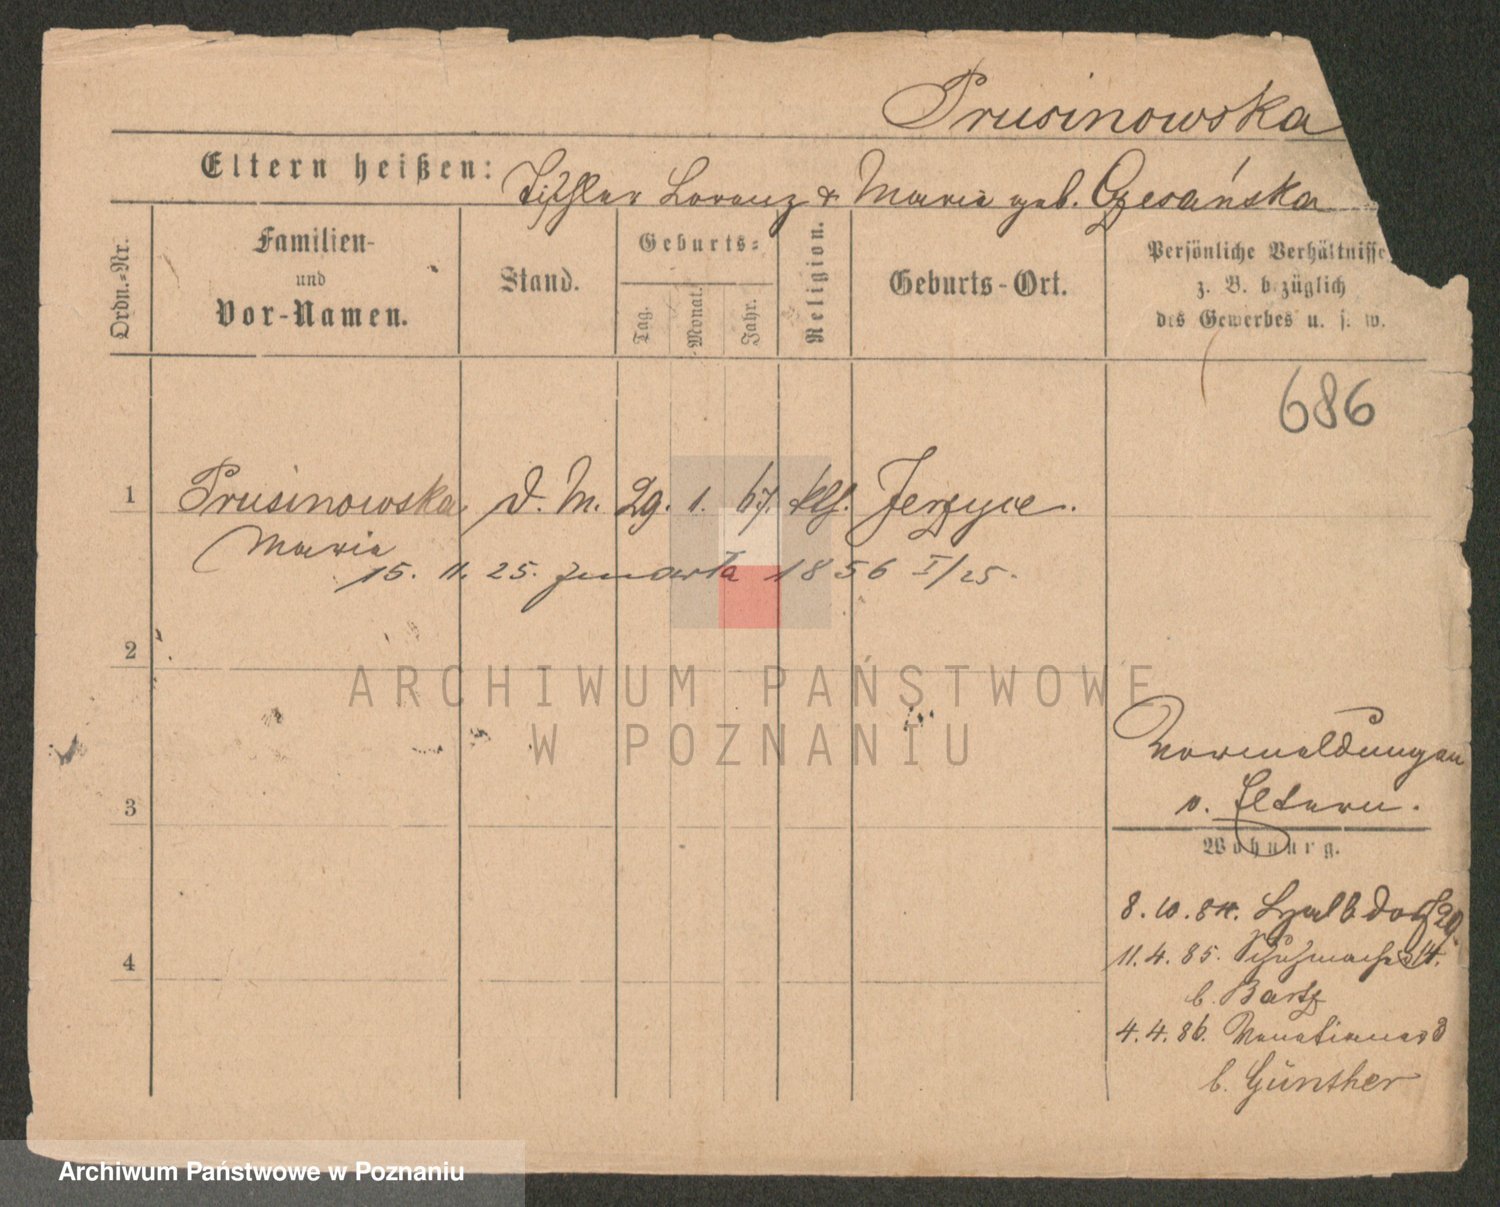 Prusinowska
Eltern heißen: Tischler Lorenz & Marie geb. Czesańska
Ordn.-Nr.
Familien-
und
Vor-Namen.
Stand.
Geburts-
Tag.
Monat.
Jahr.
Religion.
Geburts-Ort.
Persönliche Verhältnisse
z. B. bezüglich
des Gewerbes u. s. w.
686
1 Prusinowska d. M. 29. 1. 67. kth. Jerzyce.
Maria
15. 11. 25. zmarła 1856 I/25.
2
ARCHIWUM PAŃSTWOWE
W POZNANIU
Vormeldungen
v. Eltern.
3
Wohnung.
8. 10. 84. Halbdorf 29.
11. 4. 85. Schuhmacher 14.
4
b. Bartz
4. 4. 86. Venetianer 3
b. Günther
Archiwum Państwowe w Poznaniu